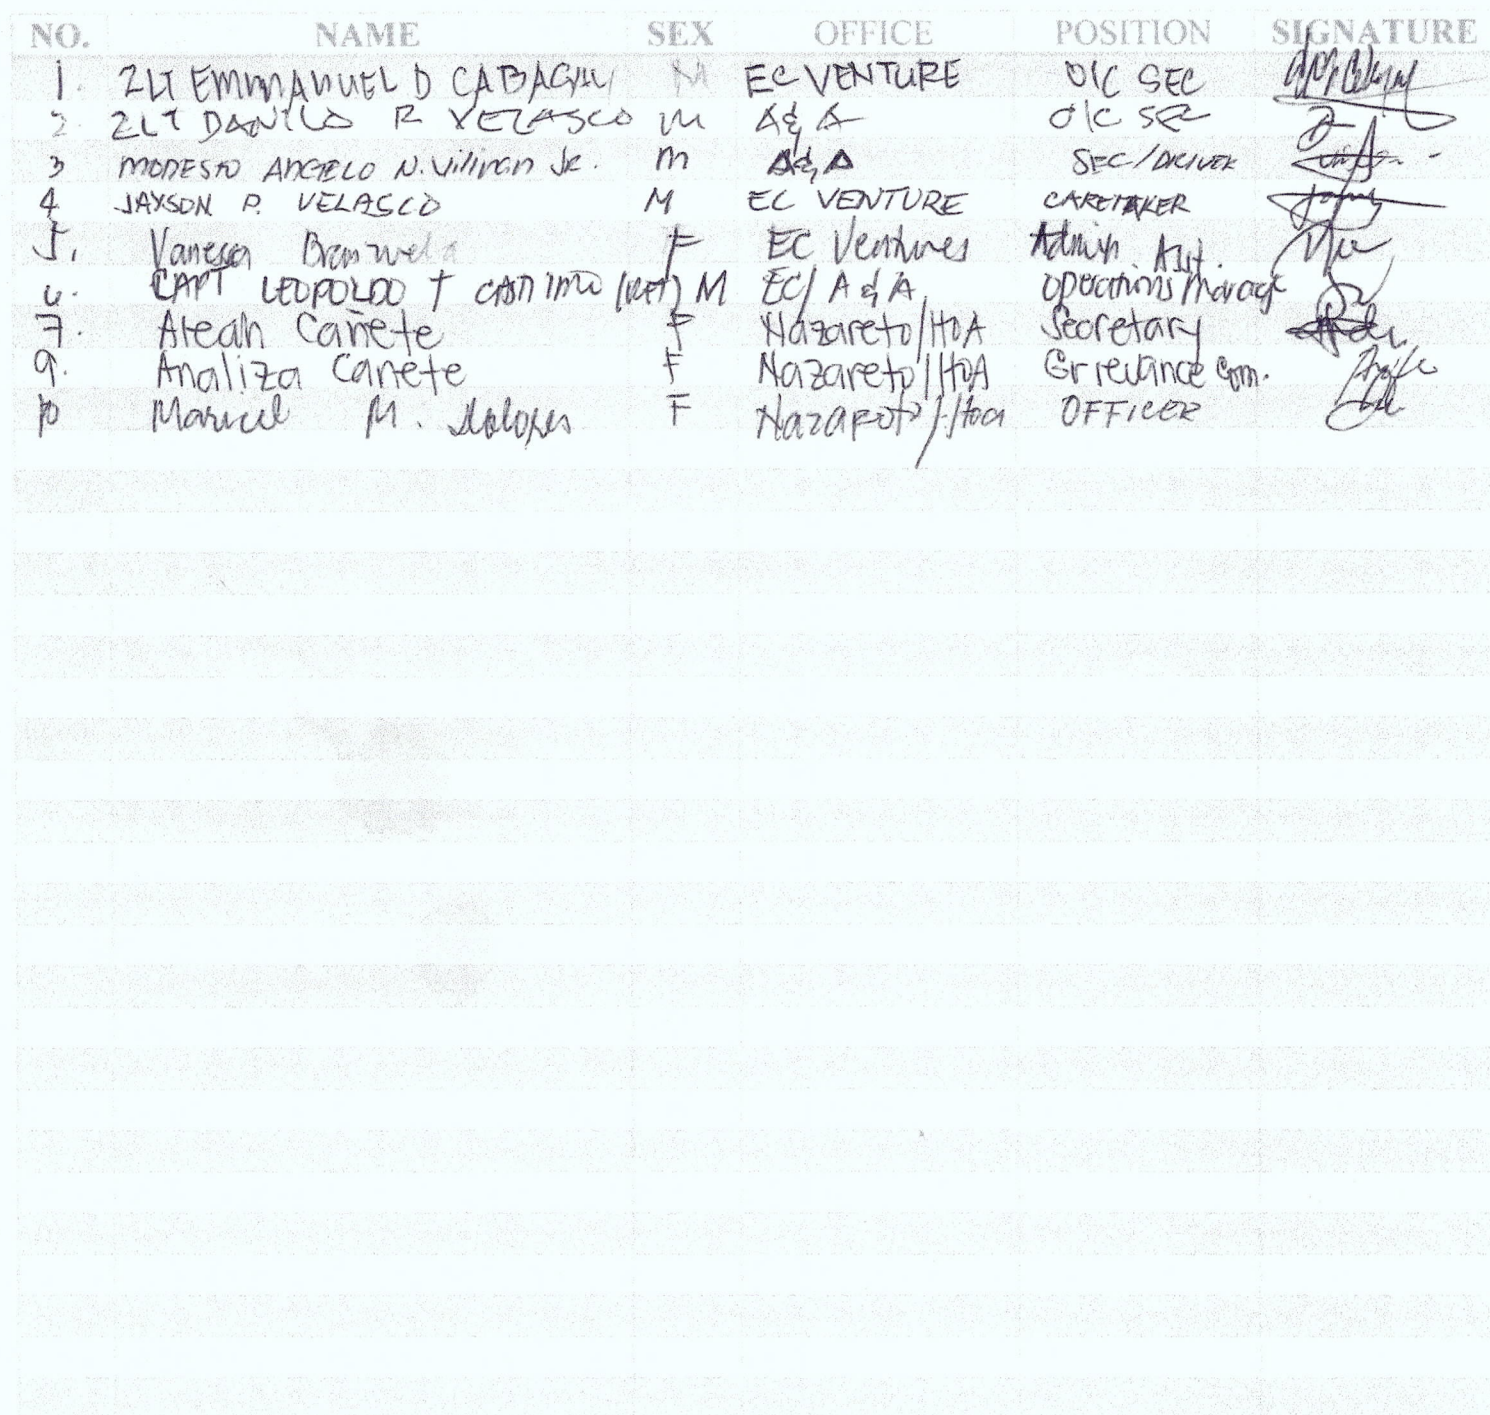 NO. NAME SEX OFFICE POSITION SIGNATURE
1. 2LT EMMANUEL D M EC VENTURE OIC SEC
2 2LT DANILO R VELASCO M A & A O/C SEC
3 MODESTO ANGELO N. Villivan Jr. M A & A SEC/DRIVER
4 JAYSON P. VELASCO M EC VENTURE CARETAKER
5. Vanessa F EC Ventures Admin. Ast.
6. CAPT LEOPOLDO T (RET) M EC/ A & A
7. Aleah Cañete F Nazareto/HOA Secretary
9. Analiza Cañete F Nazareto/HOA Grievance Com.
10 Maricel M. F Nazareto/Hoa OFFICER